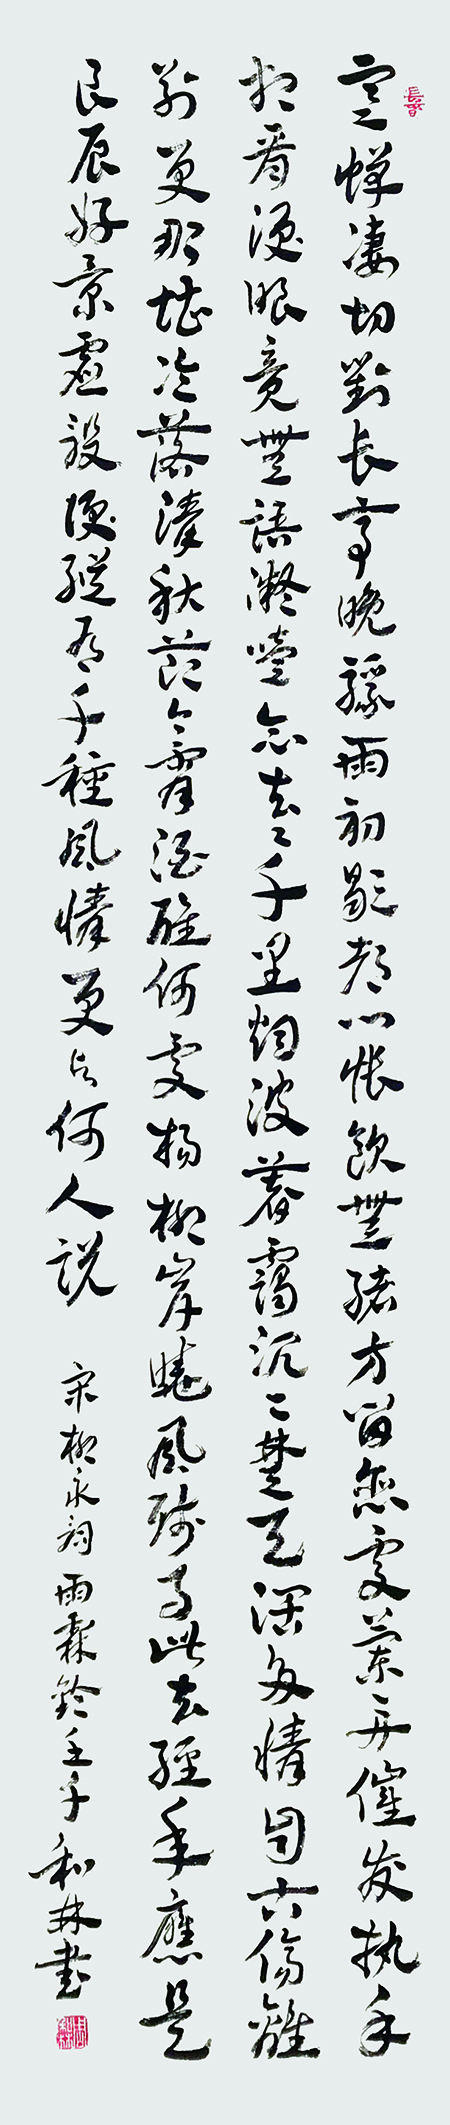 寒蝉凄切對长亭晚驟雨初歇都门帐飲無緒方留恋處蘭舟催发执手
相看淚眼竟無語凝噎念去々千里烟波暮靄沉々楚天阔多情自古傷離
别更那堪冷落清秋节今宵酒醒何處杨柳岸曉風残月此去經年應是
良辰好景虚設便縱有千種風情更与何人説
宋柳永詞雨霖鈴壬午和林書